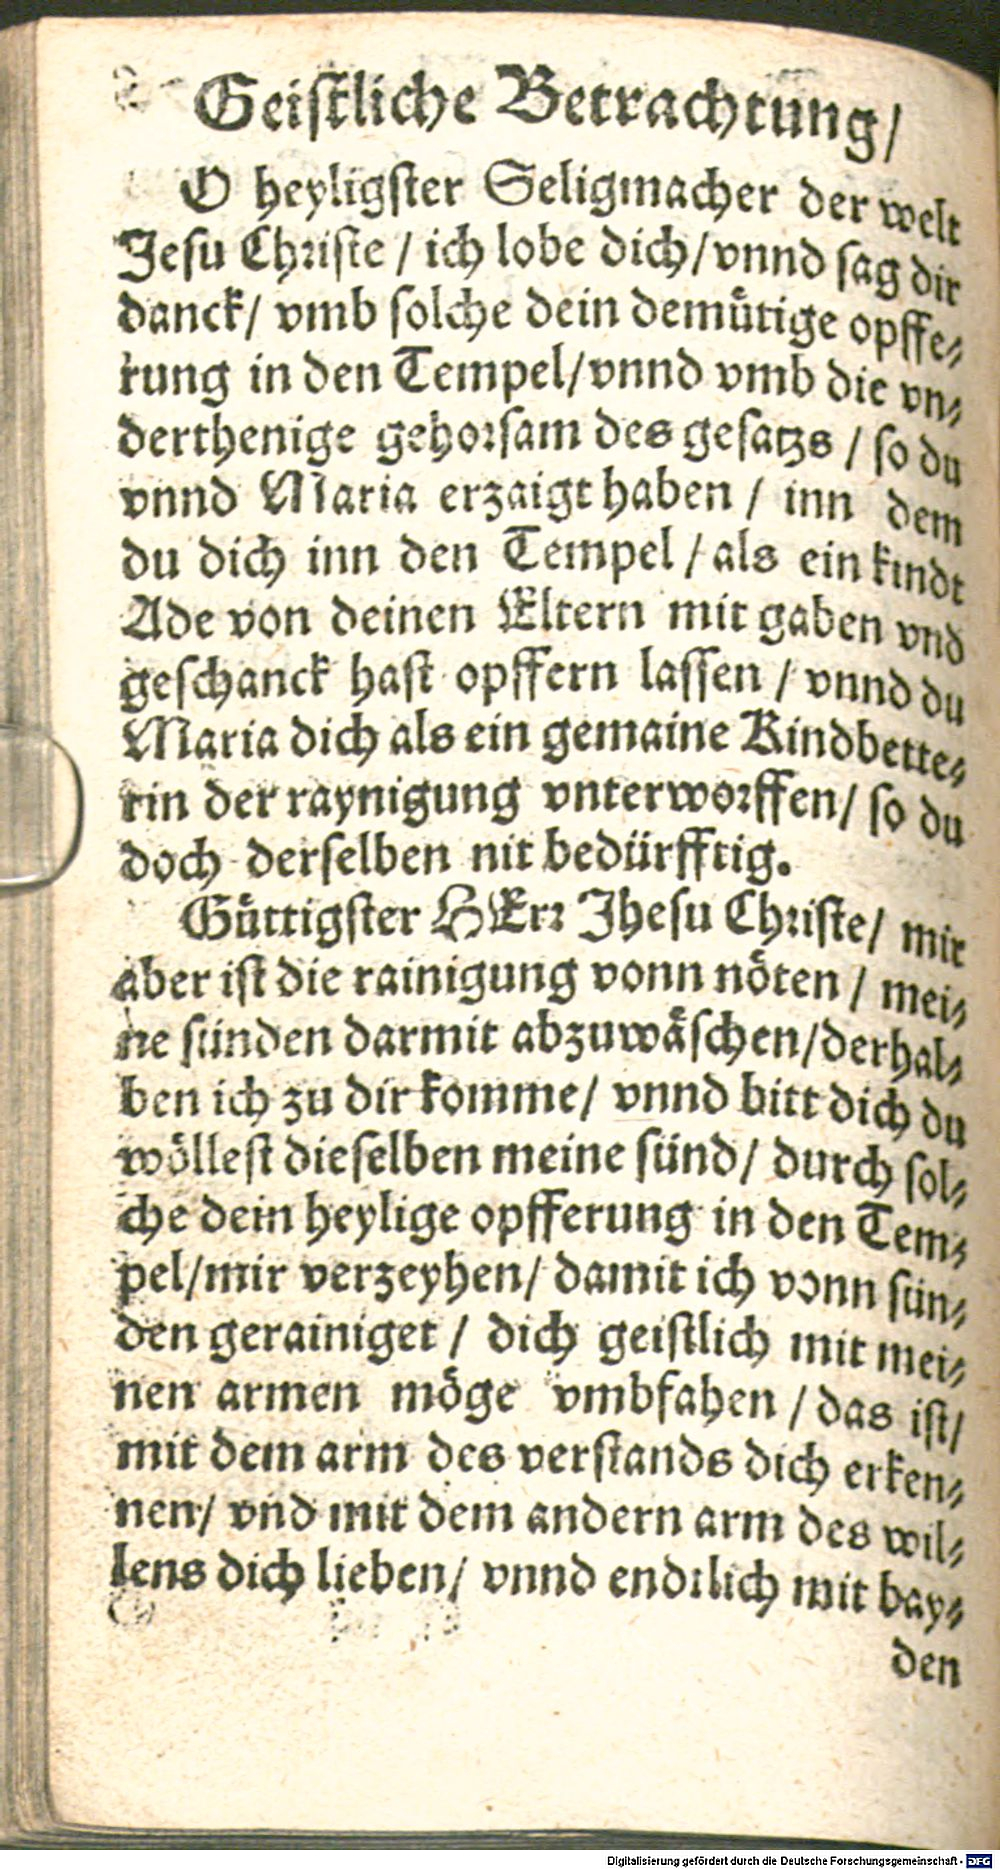 Geiſtliche Betrachtung/
O heyligſter Seligmacher der welt
Jeſu Chriſte / ich lobe dich/vnnd ſag dir
danck/ vmb ſolche dein demuͤtige opffe⸗
rung in den Tempel/vnnd vmb die vn⸗
derthenige gehorſam des geſatzs / ſo du
vnnd Maria erzaigt haben / inn dem
du dich inn den Tempel / als ein kindt
Ade von deinen Eltern mit gaben vnd
geſchanck haſt opffern laſſen / vnnd du
Maria dich als ein gemaine Kindbette⸗
rin der raynigung vnterworffen/ ſo du
doch derſelben nit bedürfftig.
Guͤttigſter HErr Jheſu Chriſte/ mir
aber iſt die rainigung vonn noͤten / mei⸗
ne ſünden darmit abzuwaͤſchen/derhal⸗
ben ich zu dir komme/ vnnd bitt dich du
woͤlleſt dieſelben meine ſünd/ durch ſol⸗
che dein heylige opfferung in den Tem⸗
pel/mir verzeyhen/ damit ich vonn ſün⸗
den gerainiget / dich geiſtlich mit mei⸗
nen armen moͤge vmbfahen / das iſt/
mit dem arm des verſtands dich erken⸗
nen/ vnd mit dem andern arm des wil⸗
lens dich lieben/ vnnd endtlich mit bay⸗
den
Digitalisierung gefördert durch die Deutsche Forschungsgemeinschaft - DFG